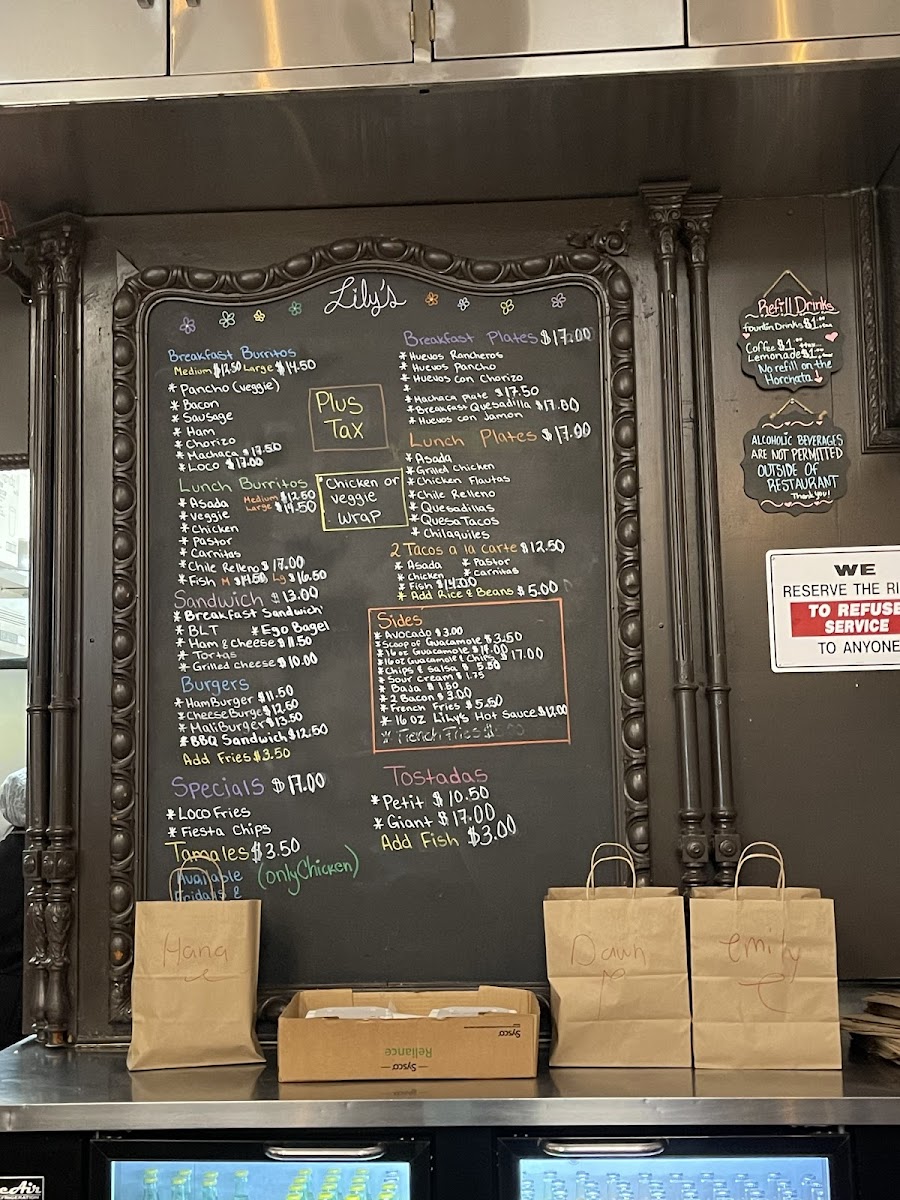 Lily's
Breakfast Burritos
Medium $12.50 Large $14.50
* Pancho (veggie)
* Bacon
* Sausage
* Ham
* Chorizo
* Machaca $17.50
* Loco $17.00
Plus
Tax
Lunch Burritos
Medium $12.50
Large $14.50
* Asada
* Veggie
* Chicken
* Pastor
* Carnitas
* Chile Relleno $17.00
* Fish M $14.50 Lg $16.50
Chicken or
veggie
wrap
Sandwich $13.00
* Breakfast Sandwich
* BLT * Egg Bagel
* Ham & cheese $11.50
* Tortas
* Grilled cheese $10.00
Burgers
* HamBurger $11.50
* CheeseBurge $12.50
* MaliBurger $13.50
* BBQ Sandwich $12.50
Add Fries $3.50
Specials $17.00
* Loco Fries
* Fiesta Chips
Tamales $3.50
Available (only Chicken)
Fridays &
Breakfast Plates $17.00
* Huevos Rancheros
* Huevos Pancho
* Huevos con Chorizo
*
* Machaca Plate $17.50
* Breakfast Quesadilla $17.00
* Huevos con Jamon
Lunch Plates $17.00
* Asada
* Grilled Chicken
* Chicken Flautas
* Chile Relleno
* Quesadillas
* QuesaTacos
* Chilaquiles
2 Tacos a la carte $12.50
* Asada * Pastor
* Chicken * Carnitas
* Fish $14.00
* Add Rice & Beans $5.00
Sides
* Avocado $3.00
* Scoop of Guacamole $3.50
* 16 oz Guacamole $14.00
* 16 oz Guacamole & Chips $17.00
* Chips & Salsa $5.50
* Sour Cream $1.75
* Baja $1.50
* 2 Bacon $3.00
* French Fries $5.50
* 16 oz Lily's Hot Sauce $12.00
* French Fries
Tostadas
* Petit $10.50
* Giant $17.00
Add Fish $3.00
Refill Drinks
Fountin Drinks $1.00
Coffee $1.00
Lemonade $1.00
No refill on the
Horchata
ALCOHOLIC BEVERAGES
ARE NOT PERMITTED
OUTSIDE OF
RESTAURANT
Thank you!
WE
RESERVE THE RI
TO REFUSE
SERVICE
TO ANYONE
Hana
Dawn
emily
Sysco
Reliance
Sysco
eAir